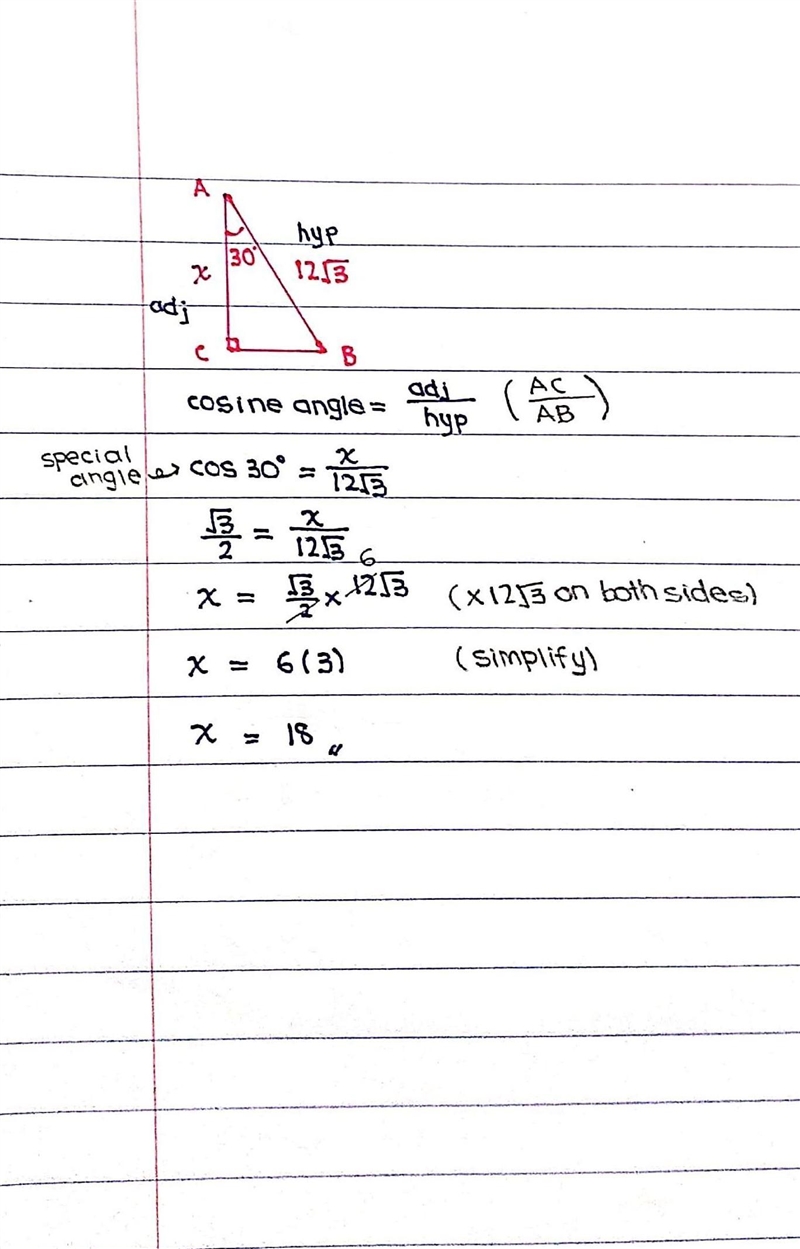 A
hyp
30°
x
12√3
adj
C
B
cosine angle = adj/hyp (AC/AB)
special angle ↩ cos 30° = x/12√3
√3/2 = x/12√3
6
x = √3/2 x 12√3 (x 12√3 on both sides)
x = 6(3) (simplify)
x = 18 〃